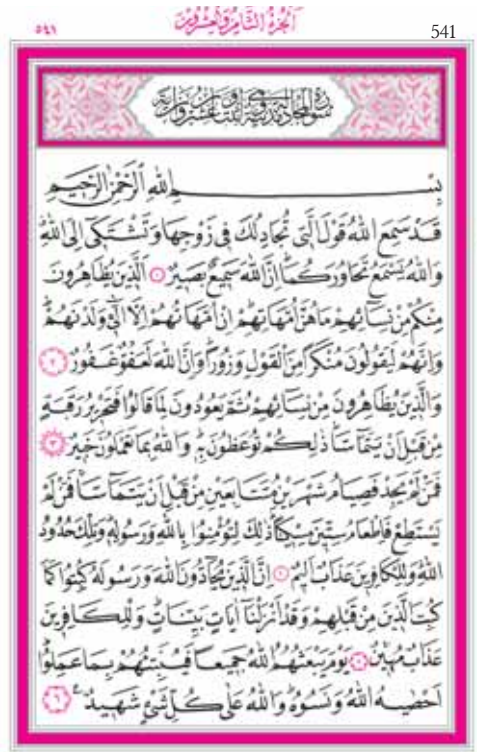 ٥٤١ اَلْجُزْءُ الثَّامِنُ وَالْعِشْرُونَ 541
سُورَةُ الْمُجَادَلَةِ مَدَنِيَّةٌ وَهِيَ اثْنَتَانِ وَعِشْرُونَ اٰيَةً
بِسْمِ اللّٰهِ الرَّحْمٰنِ الرَّحِيمِ
قَدْ سَمِعَ اللّٰهُ قَوْلَ الَّتِي تُجَادِلُكَ فِي زَوْجِهَا وَتَشْتَكِٓي اِلَى اللّٰهِ
وَاللّٰهُ يَسْمَعُ تَحَاوُرَكُمَاۜ اِنَّ اللّٰهَ سَمِيعٌ بَصِيرٌ ﴿١﴾ اَلَّذِينَ يُظَاهِرُونَ
مِنْكُمْ مِنْ نِسَٓائِهِمْ مَا هُنَّ اُمَّهَاتِهِمْۜ اِنْ اُمَّهَاتُهُمْ اِلَّا الّٰٓـِٔي وَلَدْنَهُمْۜ
وَاِنَّهُمْ لَيَقُولُونَ مُنْكَرًا مِنَ الْقَوْلِ وَزُورًاۜ وَاِنَّ اللّٰهَ لَعَفُوٌّ غَفُورٌ ﴿٢﴾
وَالَّذِينَ يُظَاهِرُونَ مِنْ نِسَٓائِهِمْ ثُمَّ يَعُودُونَ لِمَا قَالُوا فَتَحْرِيرُ رَقَبَةٍ
مِنْ قَبْلِ اَنْ يَتَمَٓاسَّاۜ ذٰلِكُمْ تُوعَظُونَ بِهِۜ وَاللّٰهُ بِمَا تَعْمَلُونَ خَبِيرٌ ﴿٣﴾
فَمَنْ لَمْ يَجِدْ فَصِيَامُ شَهْرَيْنِ مُتَتَابِعَيْنِ مِنْ قَبْلِ اَنْ يَتَمَٓاسَّاۚ فَمَنْ لَمْ
يَسْتَطِعْ فَاِطْعَامُ سِتِّينَ مِسْكِينًاۜ ذٰلِكَ لِتُؤْمِنُوا بِاللّٰهِ وَرَسُولِهِۜ وَتِلْكَ حُدُودُ
اللّٰهِۜ وَلِلْكَافِرِينَ عَذَابٌ اَلِيمٌ ﴿٤﴾ اِنَّ الَّذِينَ يُحَٓادُّونَ اللّٰهَ وَرَسُولَهُ كُبِتُوا كَمَا
كُبِتَ الَّذِينَ مِنْ قَبْلِهِمْ وَقَدْ اَنْزَلْنَٓا اٰيَاتٍ بَيِّنَاتٍۜ وَلِلْكَافِرِينَ
عَذَابٌ مُهِينٌ ﴿٥﴾ يَوْمَ يَبْعَثُهُمُ اللّٰهُ جَمِيعًا فَيُنَبِّئُهُمْ بِمَا عَمِلُواۜ
اَحْصٰيهُ اللّٰهُ وَنَسُوهُۜ وَاللّٰهُ عَلٰى كُلِّ شَيْءٍ شَهِيدٌ ﴿٦﴾